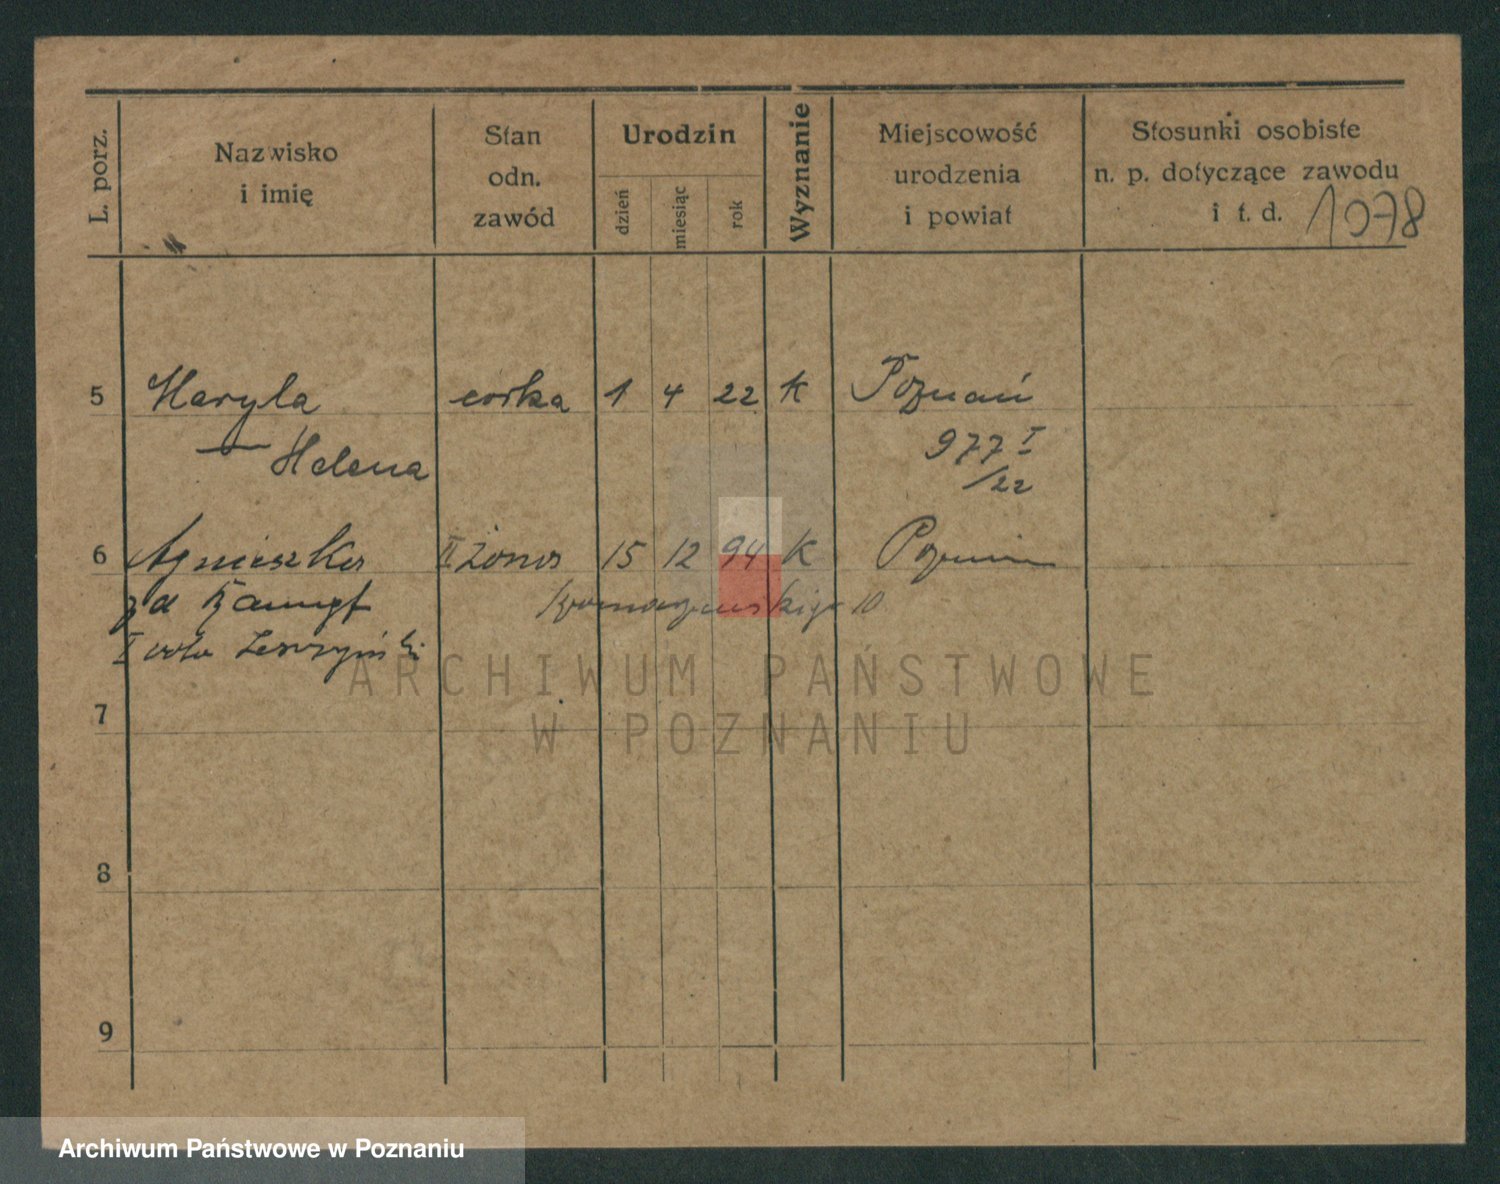 L. porz.
Nazwisko
i imię
Stan
odn.
zawód
Urodzin
dzień
miesiąc
rok
Wyznanie
Miejscowość
urodzenia
i powiat
Stosunki osobiste
n. p. dotyczące zawodu
i t. d. 1078
5 Maryla córka 1 4 22 k Poznań
— Helena 977 I
/22
6 Agnieszka II żona 15 12 94 k Poznań
zd Kampf 10
I voto Leszczyński
7
8
9
ARCHIWUM PAŃSTWOWE
W POZNANIU
Archiwum Państwowe w Poznaniu